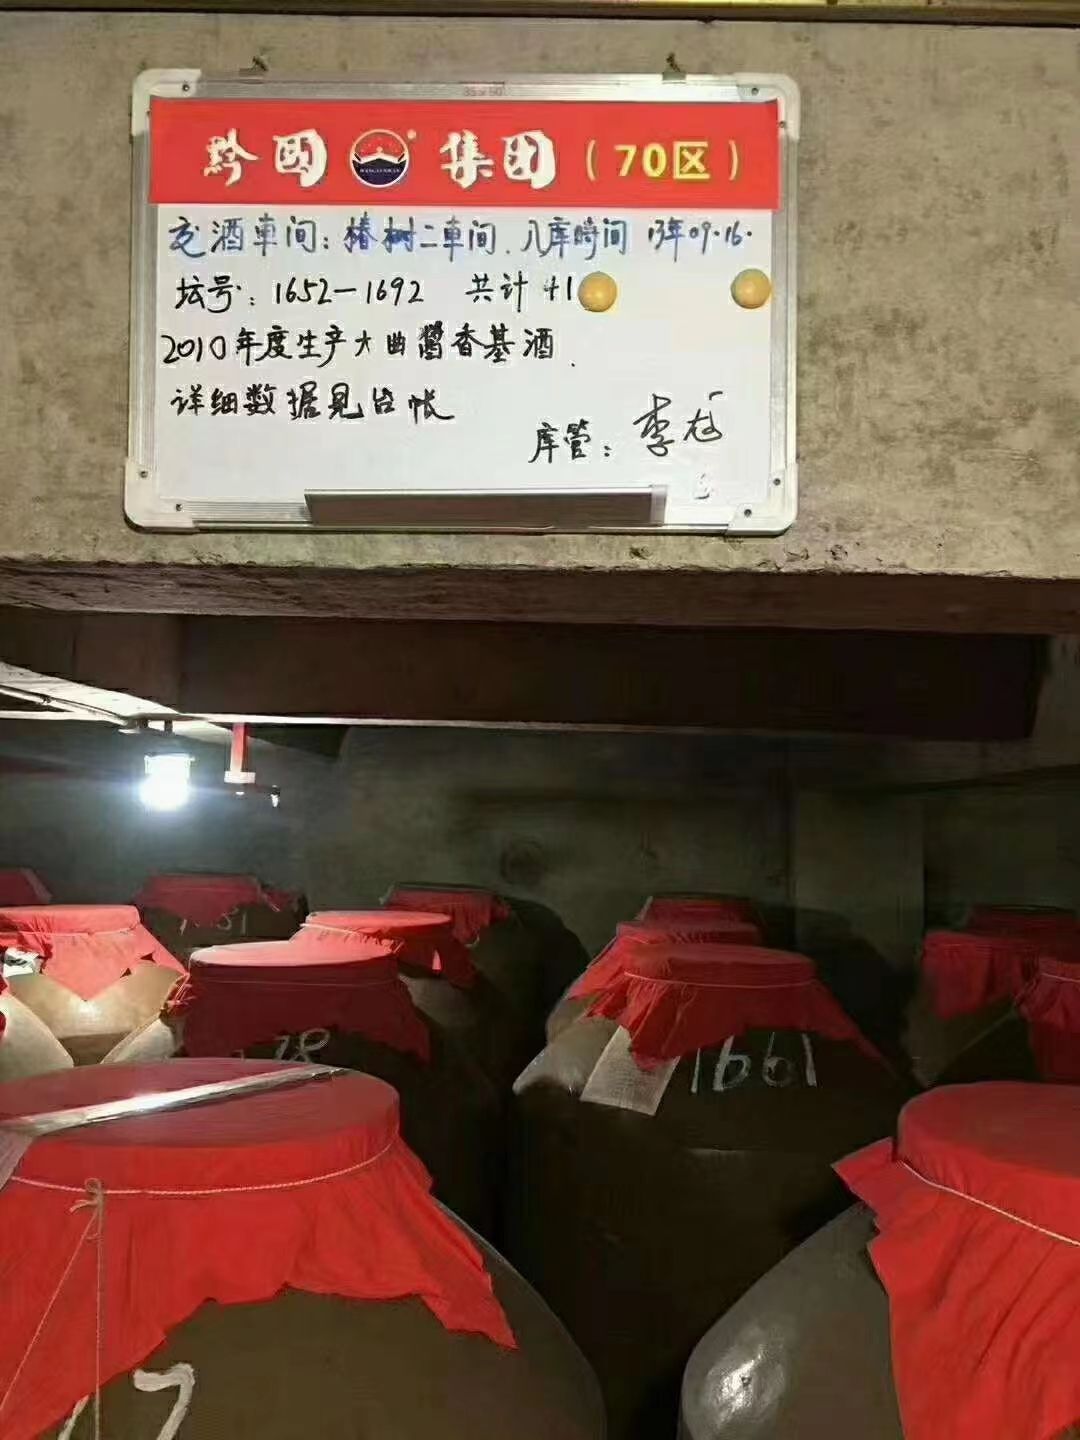 35×50
黔国集团（70区）
交酒车间：椿树二车间.入库時间 13年09.16.
坛号：1652—1692 共计41
2010年度生产大曲酱香基酒.
详细数据见台帐
库管：李
31
28
1661
17